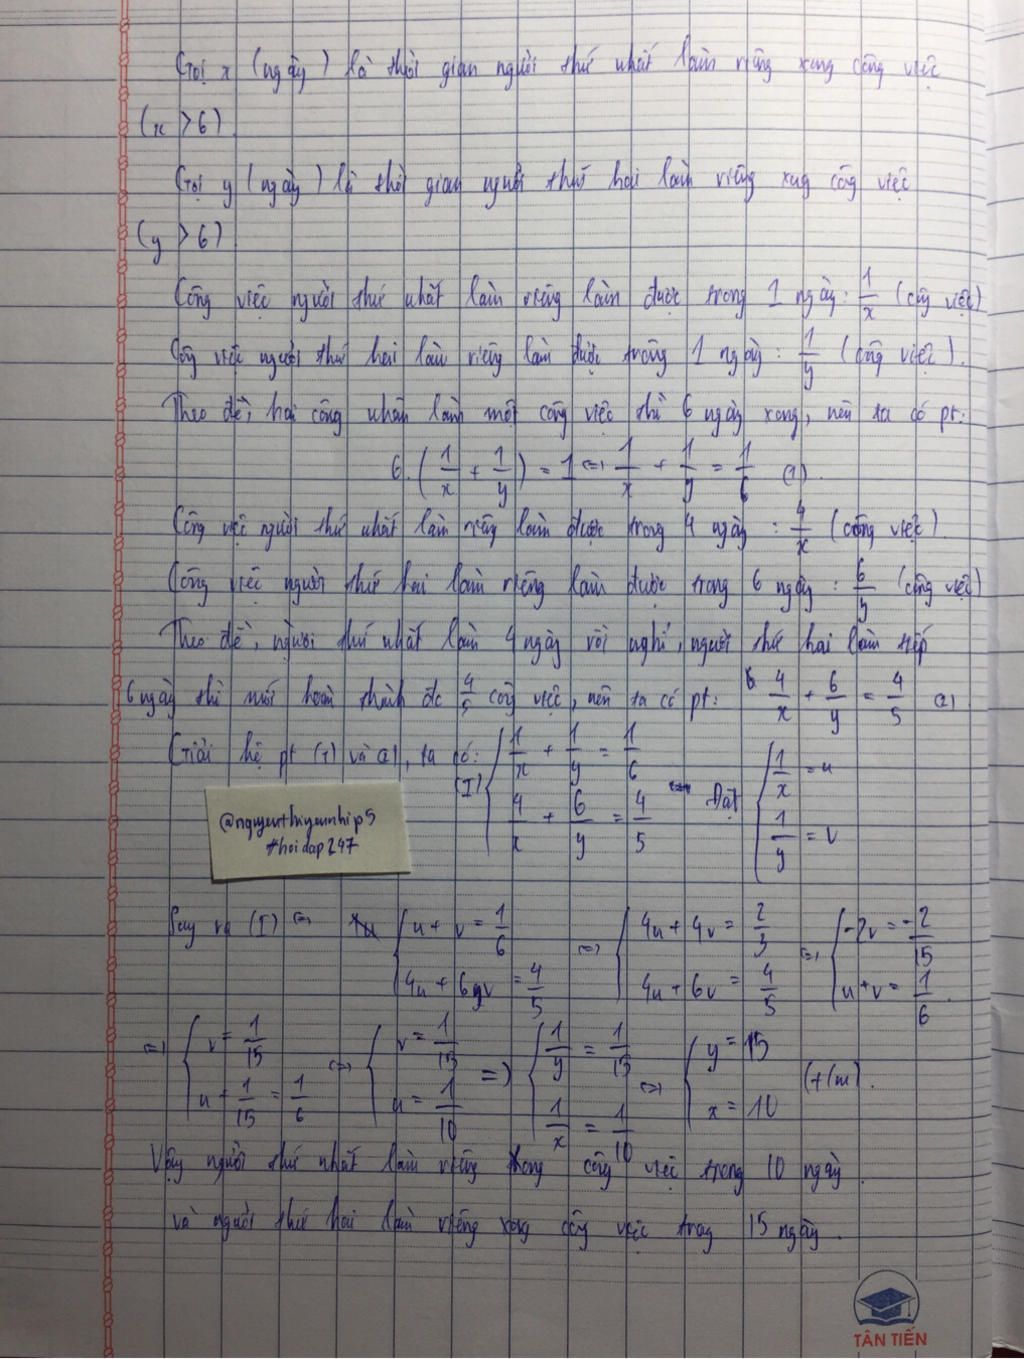 Gọi x (ngày) là thời gian người thứ nhất làm riêng xong công việc
(x > 6)
Gọi y (ngày) là thời gian người thứ hai làm riêng xong công việc
(y > 6)
Công việc người thứ nhất làm riêng làm được trong 1 ngày: 1/x (công việc)
Công việc người thứ hai làm riêng làm được trong 1 ngày: 1/y (công việc).
Theo đề, hai công nhân làm một công việc thì 6 ngày xong, nên ta có pt:
6.(1/x + 1/y) = 1 <=> 1/x + 1/y = 1/6 (1).
Công việc người thứ nhất làm riêng làm được trong 4 ngày: 4/x (công việc).
Công việc người thứ hai làm riêng làm được trong 6 ngày: 6/y (công việc)
Theo đề, người thứ nhất làm 4 ngày rồi nghỉ, người thứ hai làm tiếp
6 ngày thì mới hoàn thành đc 4/5 công việc, nên ta có pt: 4/x + 6/y = 4/5 (2)
Giải hệ pt (1) và (2), ta có: (I) { 1/x + 1/y = 1/6 ; 4/x + 6/y = 4/5 Đặt { 1/x = u ; 1/y = v
@nguyenthiyennhip5
#hoidap247
Suy ra (I) <=> { u + v = 1/6 ; 4u + 6v = 4/5 <=> { 4u + 4v = 2/3 ; 4u + 6v = 4/5 <=> { -2v = -2/15 ; u + v = 1/6
<=> { v = 1/15 ; u + 1/15 = 1/6 <=> { v = 1/15 ; u = 1/10 => { 1/y = 1/15 ; 1/x = 1/10 <=> { y = 15 ; x = 10 (t/m).
Vậy người thứ nhất làm riêng xong công việc trong 10 ngày
và người thứ hai làm riêng xong công việc trong 15 ngày.
TÂN TIẾN